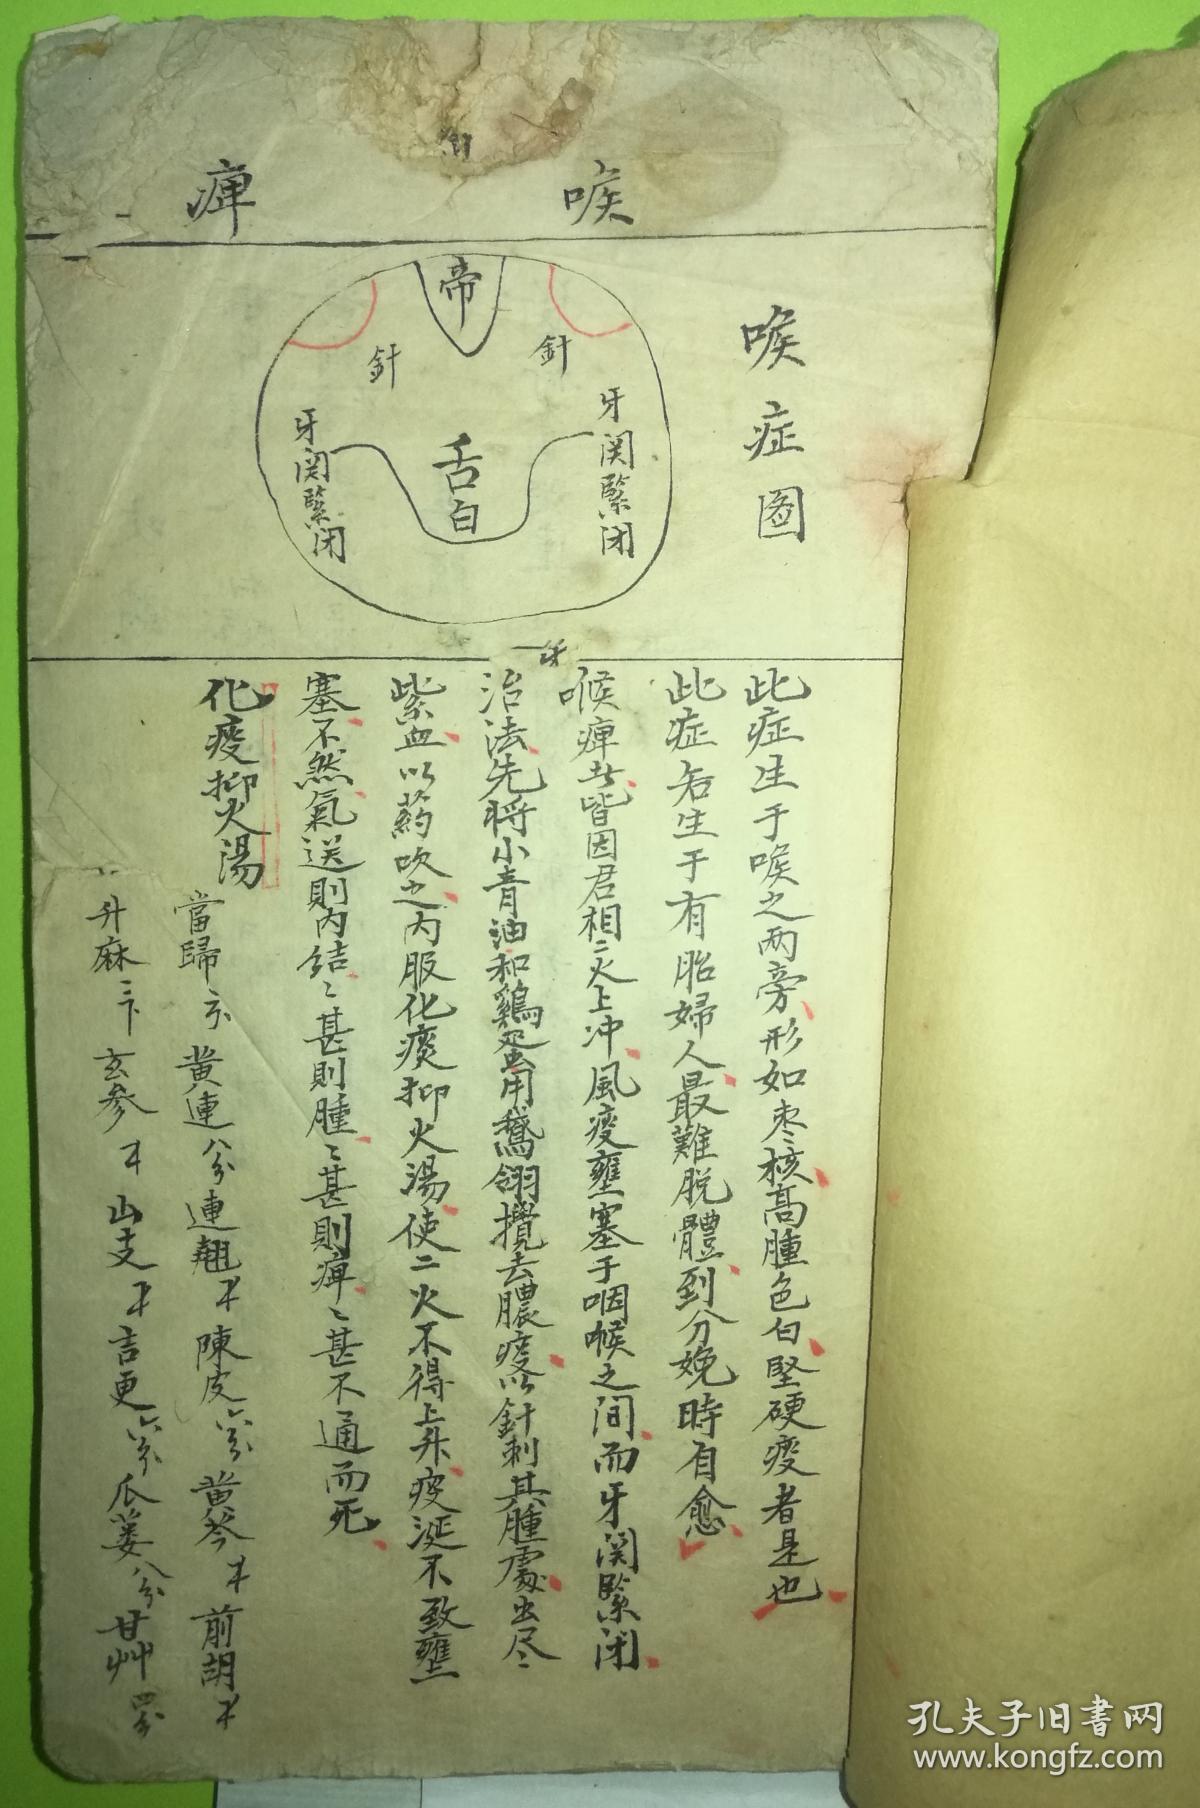 喉痺
喉症图
帝
針
針
牙関緊闭
牙関緊闭
舌白
此症生于喉之两旁形如枣核高腫色白堅硬痰者是也
此症若生于有胎婦人最難脱體到分娩時自愈
喉痺者皆因君相二火上冲風痰壅塞于咽喉之间而牙関緊闭
治法先將小青油和鷄蛋用鵝翎攪去膿痰以針刺其腫處出尽
紫血以葯吹之内服化痰抑火湯使二火不得上升痰涎不致壅
塞不然氣送則内結〻甚則腫〻甚則痺〻甚不通而死
化痰抑火湯
當歸 黄連八分 連翹 陳皮六分 黄芩 前胡
升麻三卞 玄参 山支 吉更六分 瓜蒌八分 甘艸四分
孔夫子旧書网
www.kongfz.com